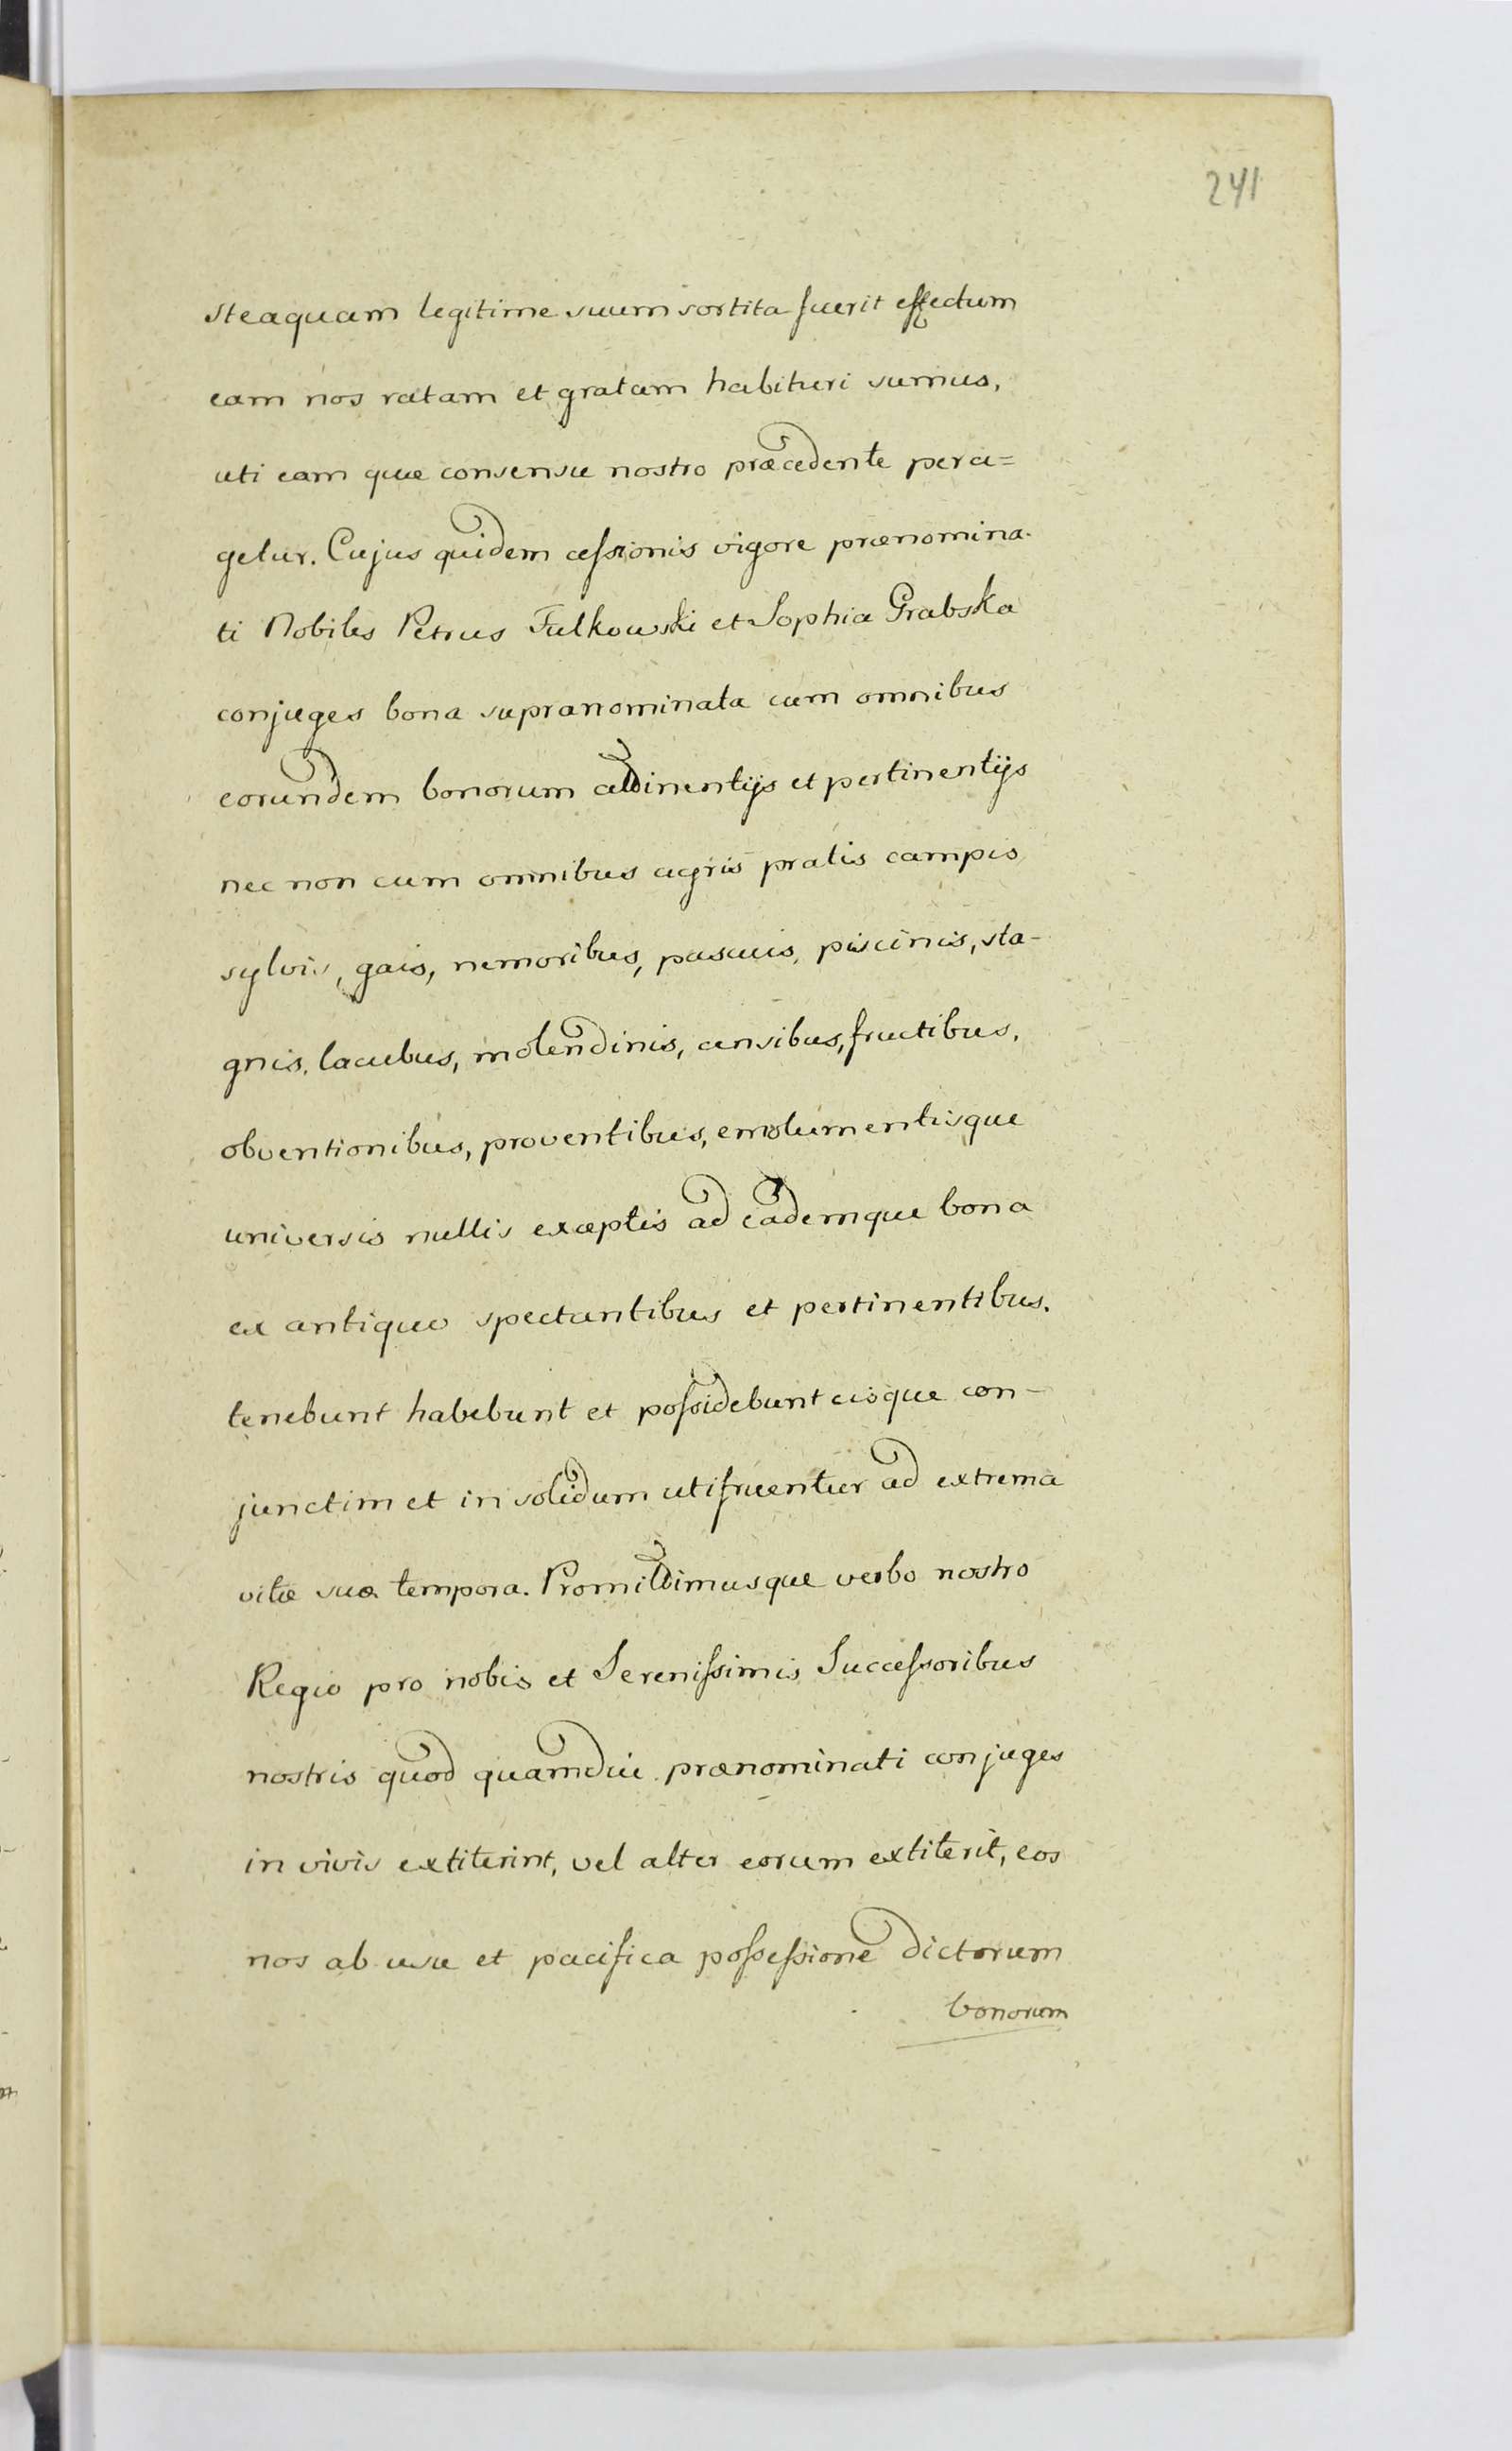 241
steaquam legitime suum sortita fuerit effectum
eam nos ratam et gratam habituri sumus,
uti eam quæ consensu nostro præcedente pera=
getur. Cujus quidem cessionis vigore prænomina-
ti Nobiles Petrus Fulkowski et Sophia Grabska
conjuges bona supranominata cum omnibus
eorundem bonorum attinentijs et pertinentijs
nec non cum omnibus agris pratis campis
sylvis, gais, nemoribus, pascuis, piscinis, sta-
gnis, lacubus, molendinis, censibus, fructibus,
obventionibus, proventibus, emolumentisque
universis nullis exceptis ad eademque bona
ex antiquo spectantibus et pertinentibus.
tenebunt habebunt et possidebunt eisque con-
junctim et in solidum utifruentur ad extrema
vitæ suæ tempora. Promittimusque verbo nostro
Regio pro nobis et Serenissimis Successoribus
nostris quod quamdiu prænominati conjuges
in vivis extiterint, vel alter eorum extiterit, eos
nos ab usu et pacifica possessione dictorum
bonorum